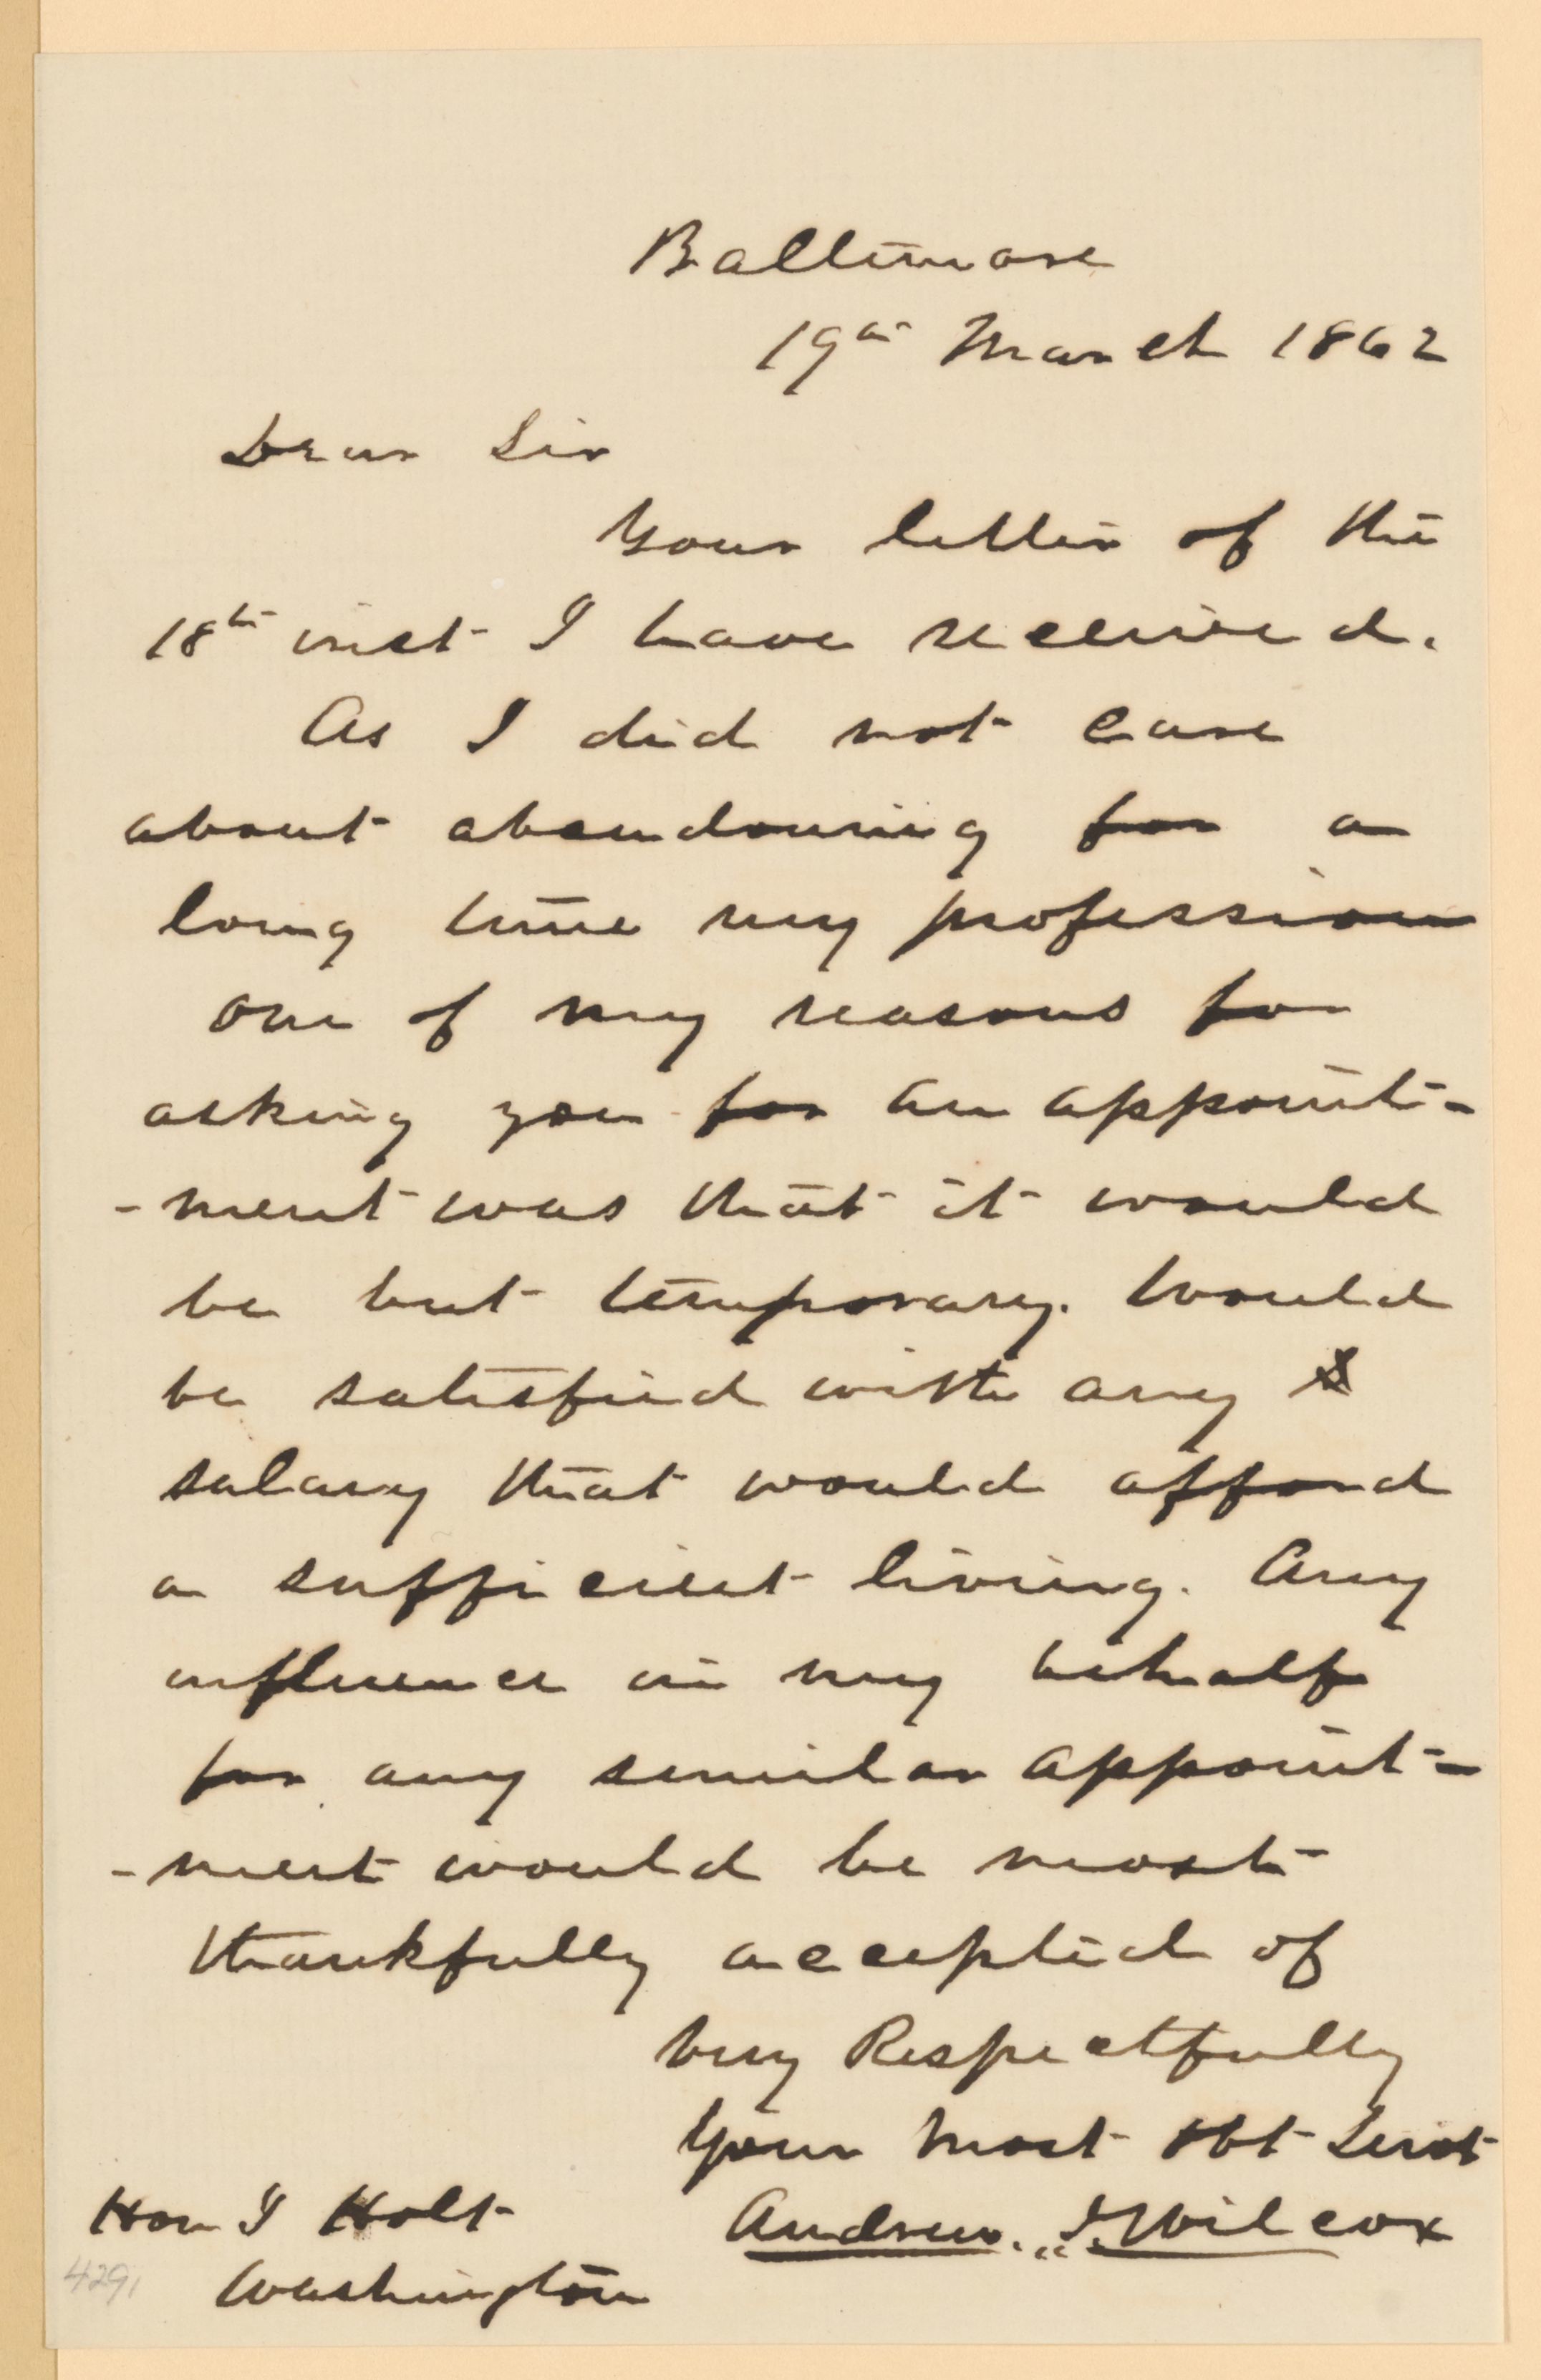 Baltimore
19th March 1862
Dear Sir
Your letter of the
18th inst I have received.
As I did not care
about abandoning for a
long time my profession
one of my reasons for
asking you for an appoint-
-ment was that it would
be but temporary. Would
be satisfied with any
salary that would afford
a sufficient living. Any
influence in my behalf
for any similar appoint-
-ment would be most
thankfully accepted of
Very Respectfully
Your most obt Servt
Andrew J. Wilcox
Hon J Holt
Washington
4291